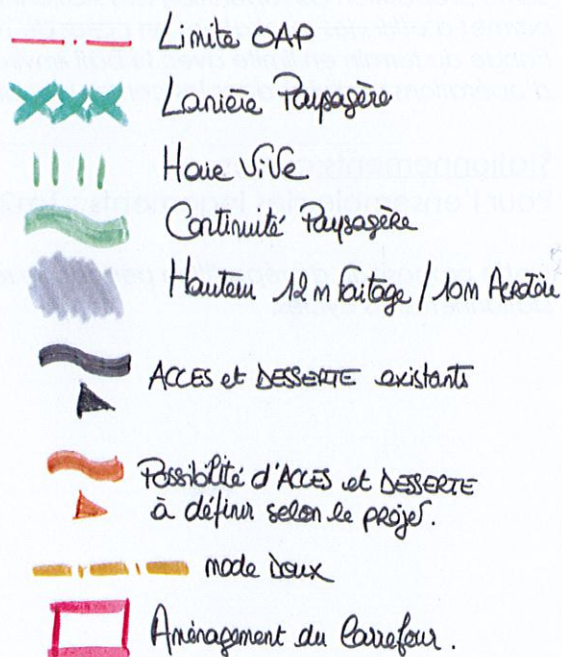 Limite OAP
Lanière Paysagère
Haie Vive
Continuité Paysagère
Hauteur 12m faitage / 10m Acrotère
ACCES et DESSERTE existants
Possibilité d'ACCES et DESSERTE
à définir selon le projet.
mode doux
Aménagement du Carrefour.